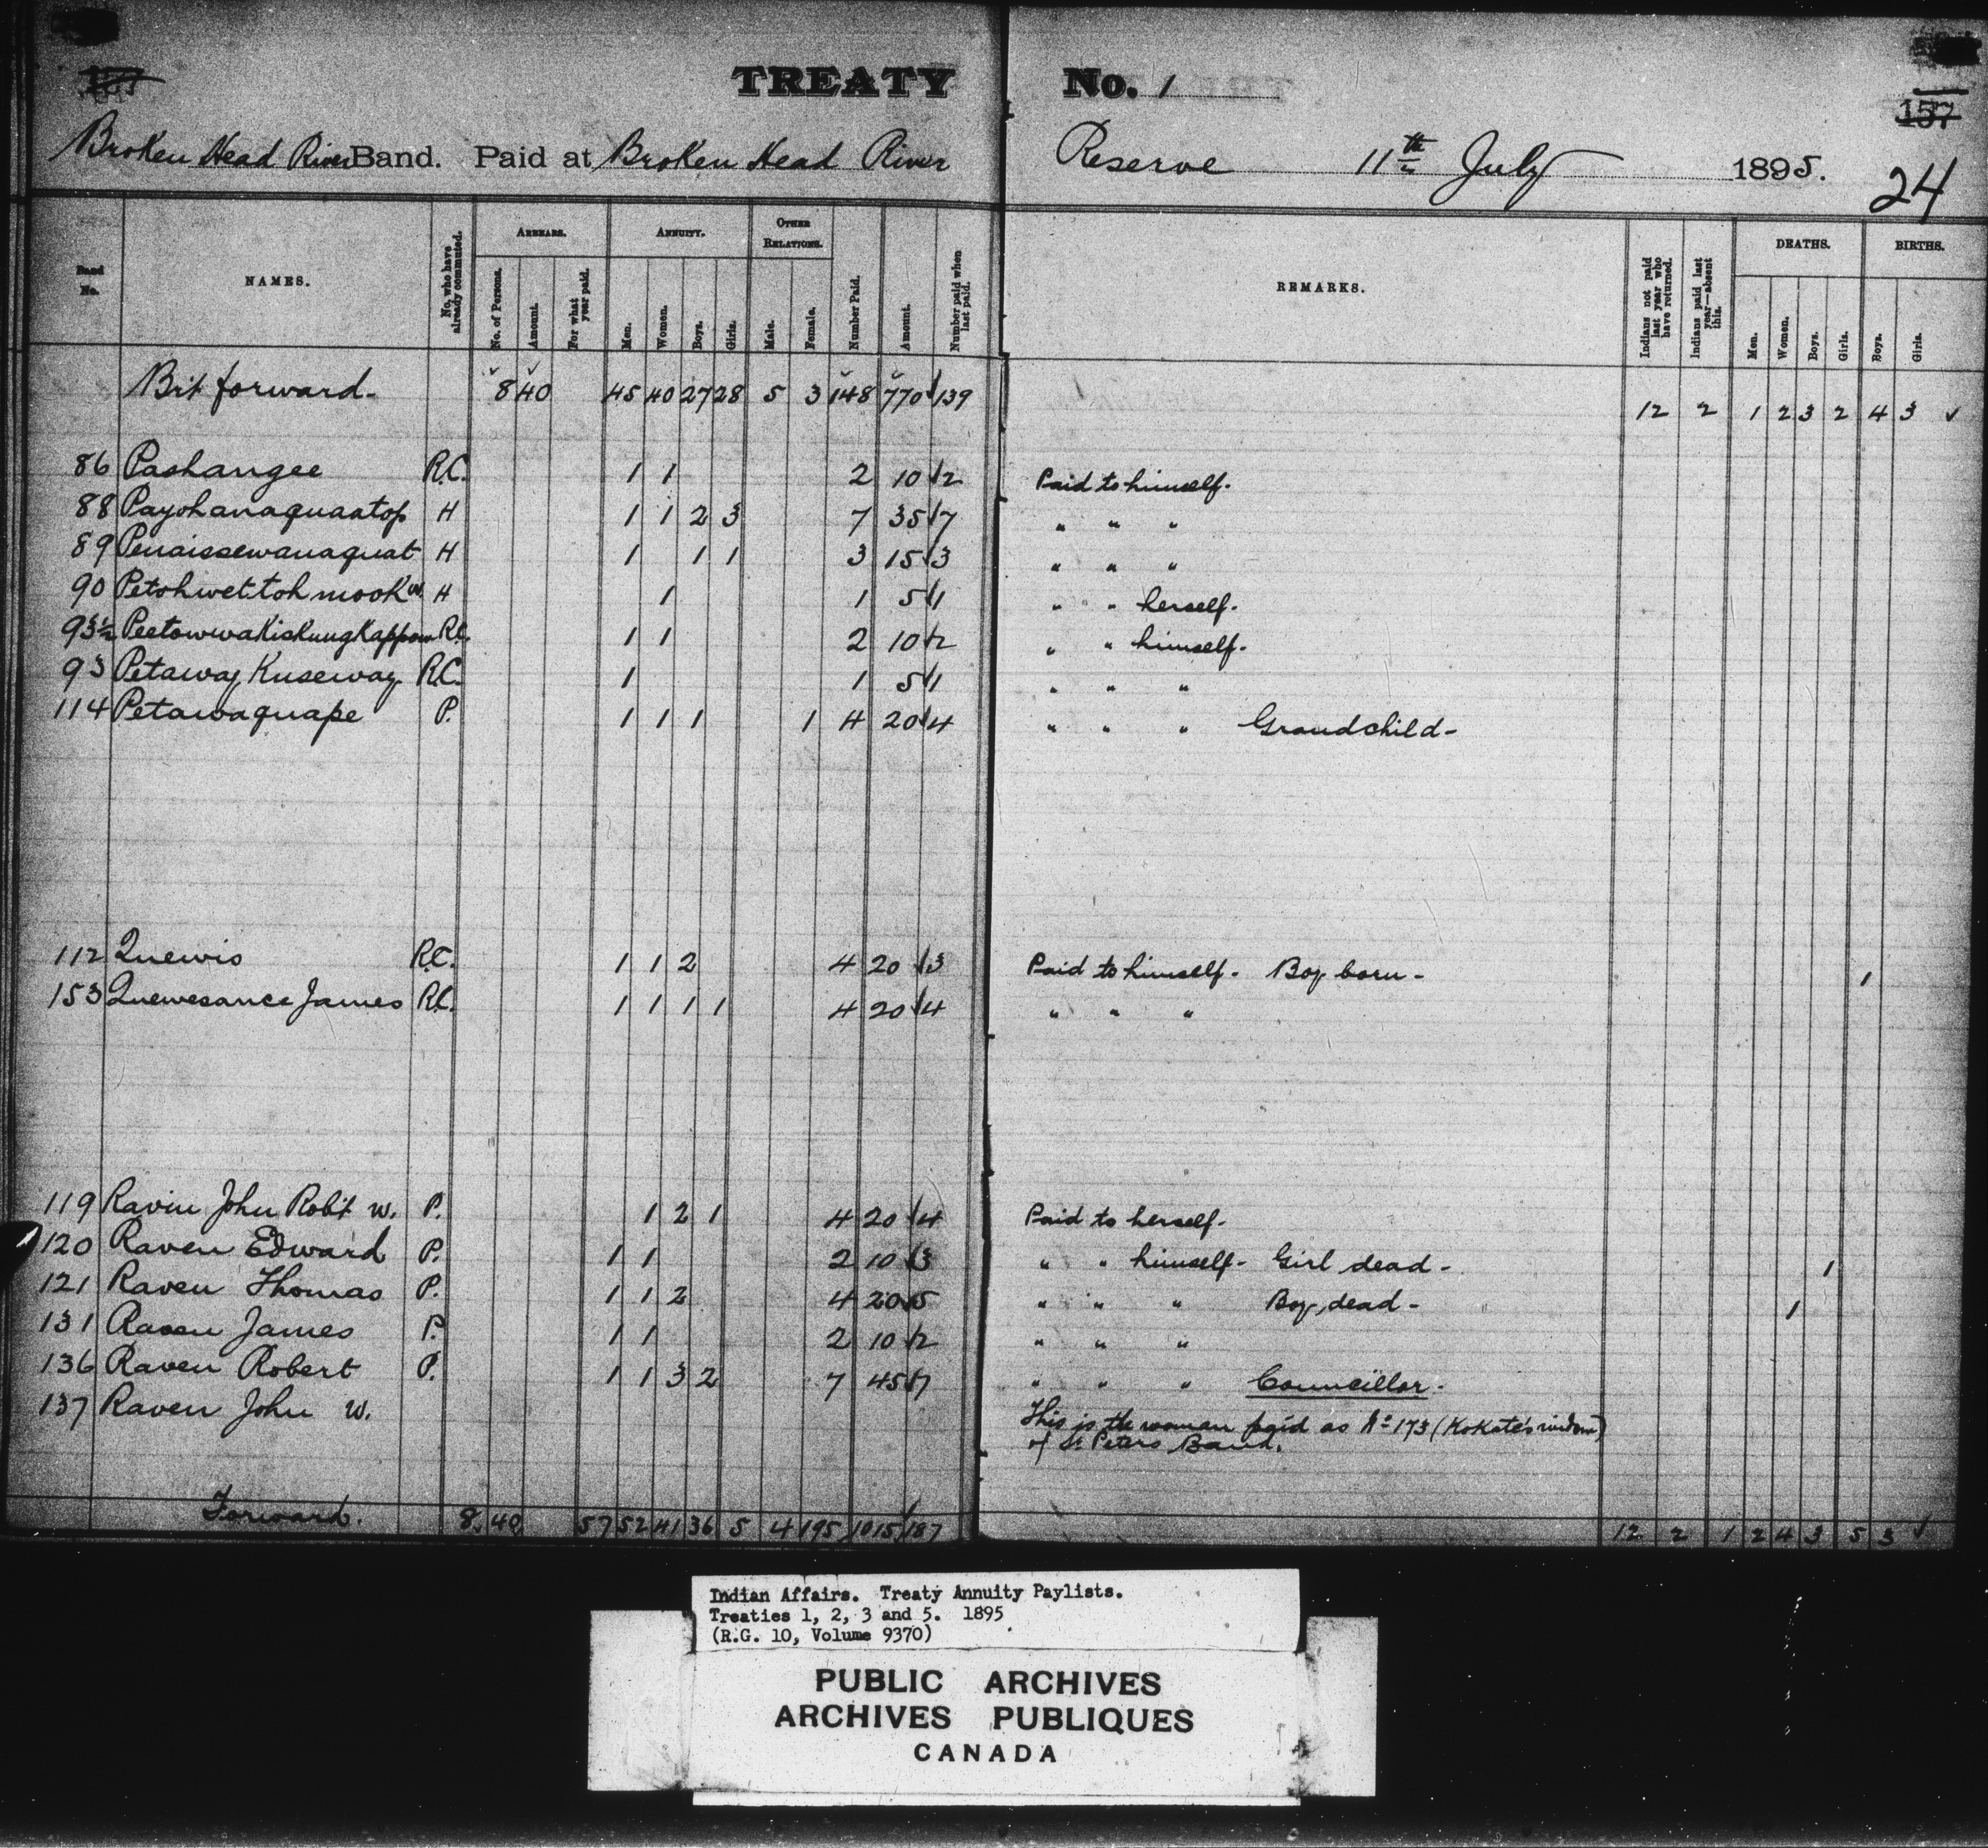 TREATY No. 1
157
Broken Head River Band. Paid at Broken Head River Reserve 11th July 1895.
24
Band No. NAMES. No. who have already commuted. ARREARS. No. of Persons. Amount. For what year paid. ANNUITY. Men. Women. Boys. Girls. OTHER RELATIONS. Male. Female. Number Paid. Amount. Number paid when last paid. REMARKS. Indians not paid last year who have returned. Indians paid last year—absent this. DEATHS. Men. Women. Boys. Girls. BIRTHS. Boys. Girls.
Brt forward- 8 40 45 40 27 28 5 3 148 770 139 12 2 1 2 3 2 4 3 ✓
86 Pashangee R.C. 1 1 2 10 2 Paid to himself.
88 Payohanaquaatop H 1 1 2 3 7 35 7 " " "
89 Penaissewanaquat H 1 1 1 3 15 3 " " "
90 Petohwettohmook w. H 1 1 5 1 " " herself.
93½ PeetowwaKisKungKappow R.C. 1 1 2 10 2 " " himself.
93 Petaway Kuseway R.C. 1 1 5 1 " " "
114 Petawaquape P. 1 1 1 1 4 20 4 " " " Grandchild-
112 Quewis R.C. 1 1 2 4 20 3 Paid to himself. Boy born- 1
153 Quewesance James R.C. 1 1 1 1 4 20 4 " " "
119 Ravin John Robt w. P. 1 2 1 4 20 4 Paid to herself.
120 Raven Edward P. 1 1 2 10 3 " " himself- Girl dead- 1
121 Raven Thomas P. 1 1 2 4 20 5 " " " Boy dead- 1
131 Raven James P. 1 1 2 10 2 " " "
136 Raven Robert P. 1 1 3 2 7 45 7 " " " Councillor.
137 Raven John w. This is the woman paid as No 173 (KoKate's widow)
of St Peters Band.
Forward. 8 40 57 52 41 36 5 4 195 1015 187 12 2 1 2 4 3 5 3 ✓
Indian Affairs. Treaty Annuity Paylists.
Treaties 1, 2, 3 and 5. 1895
(R.G. 10, Volume 9370)
PUBLIC ARCHIVES
ARCHIVES PUBLIQUES
CANADA